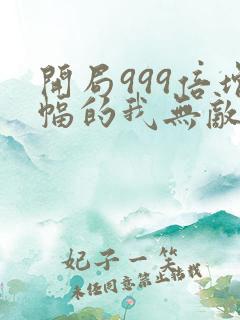 開局999倍增
幅的我無敵
妃子一笑
未经同意禁止转载